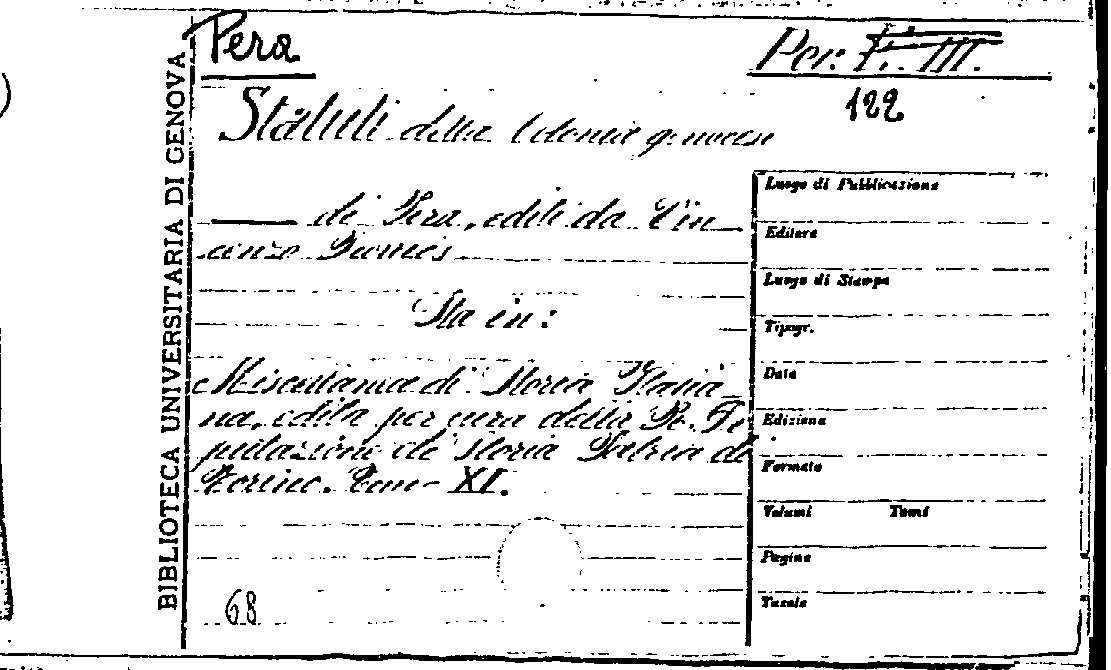 BIBLIOTECA UNIVERSITARIA DI GENOVA
Pera
Per: F. III.
122
Statuti della Colonia genovese
di Pera, editi da Vin
cenzo Promis
Sta in:
Miscellanea di Storia Italia
na, edita per cura della R. De
putazione di Storia Patria di
Torino. Tom- XI.
68
Luogo di Pubblicazione
Editore
Luogo di Stampa
Tipogr.
Data
Edizione
Formato
Volumi Tomi
Pagine
Tavole